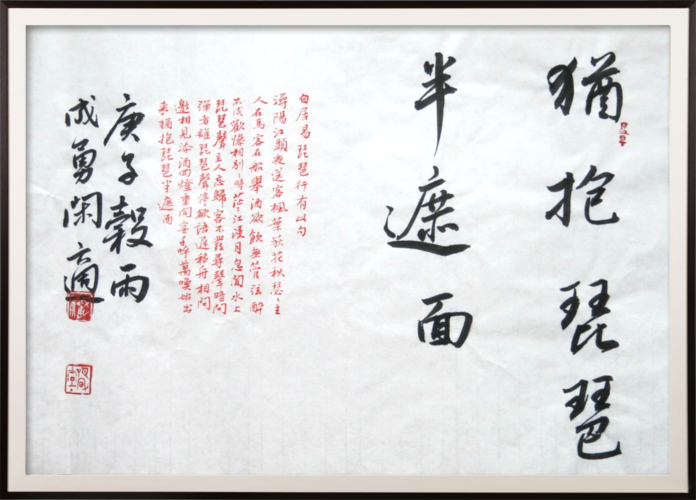 猶抱琵琶
半遮面
白居易琵琶行有以句
潯陽江頭夜送客楓葉荻花秋瑟〻主
人在馬客在船舉酒欲飲無管弦醉
不成歡慘相別〻時茫〻江浸月忽聞水上
琵琶聲主人忘歸客不發尋聲暗問
彈者誰琵琶聲停欲語遲移舟相問
邀相見添酒回燈重開宴千呼萬喚始出
來猶抱琵琶半遮面
庚子穀雨
成勇閑適